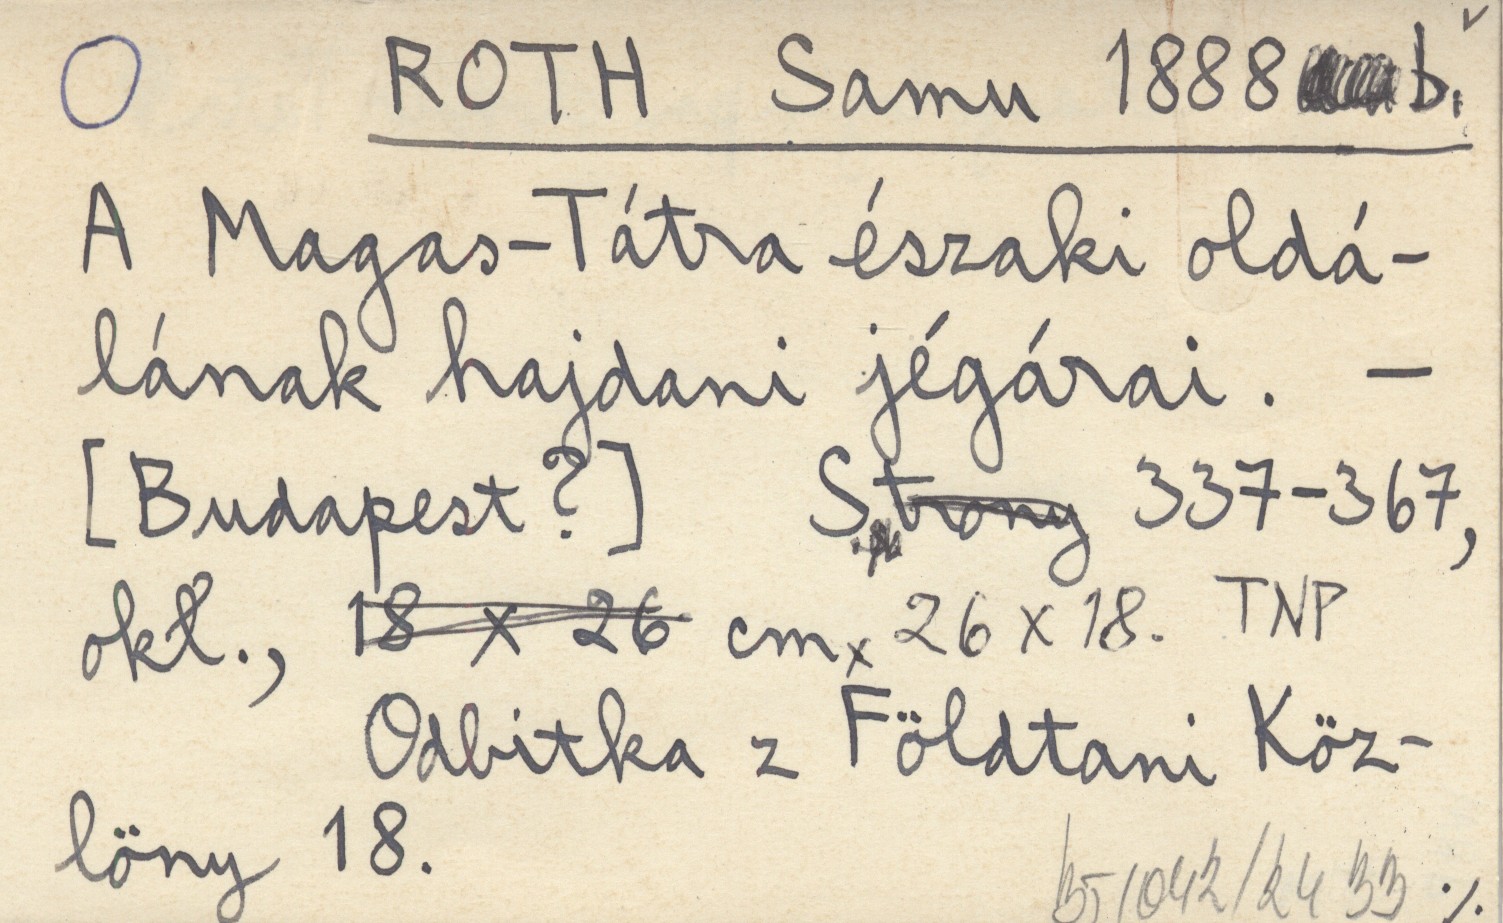 ROTH Samu 1888 b.
A Magas-Tátra északi oldá-
lának hajdani jégárai. —
[Budapest?] Strony 337-367,
okł., 18 x 26 cm, 26 x 18. TNP
Odbitka z Földtani Köz-
löny 18.